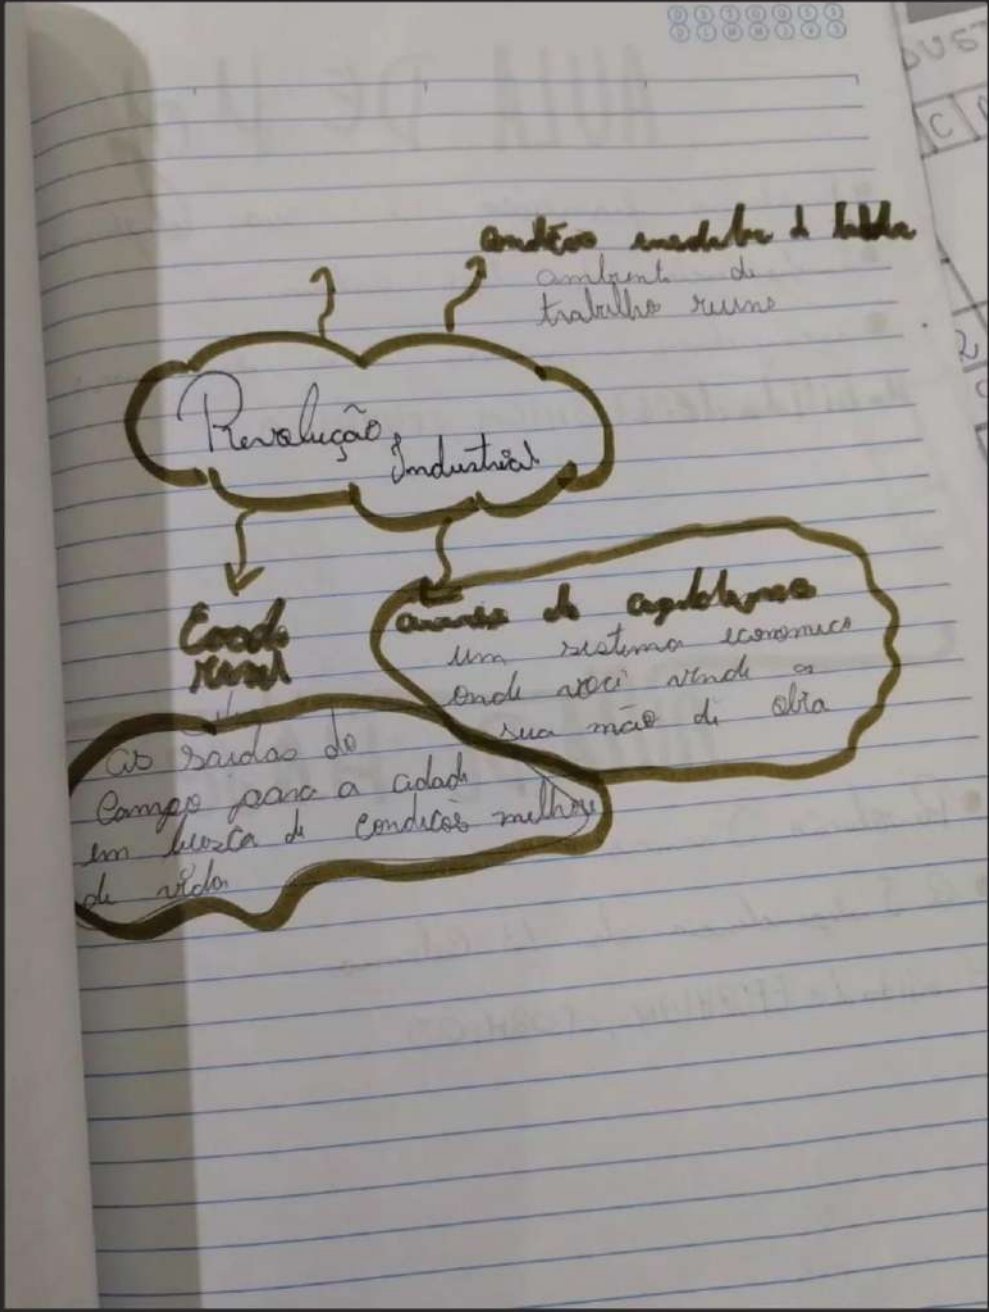 condições insalubre d trabalho
ambient de
trabalho ruins
Revolução
Industrial
Exodo
rural
avanço do capitalismo
um sistema economico
onde você vende a
sua mão de obra
as saidas do
Campo para a cidad
em busca de condicos melhores
de vida